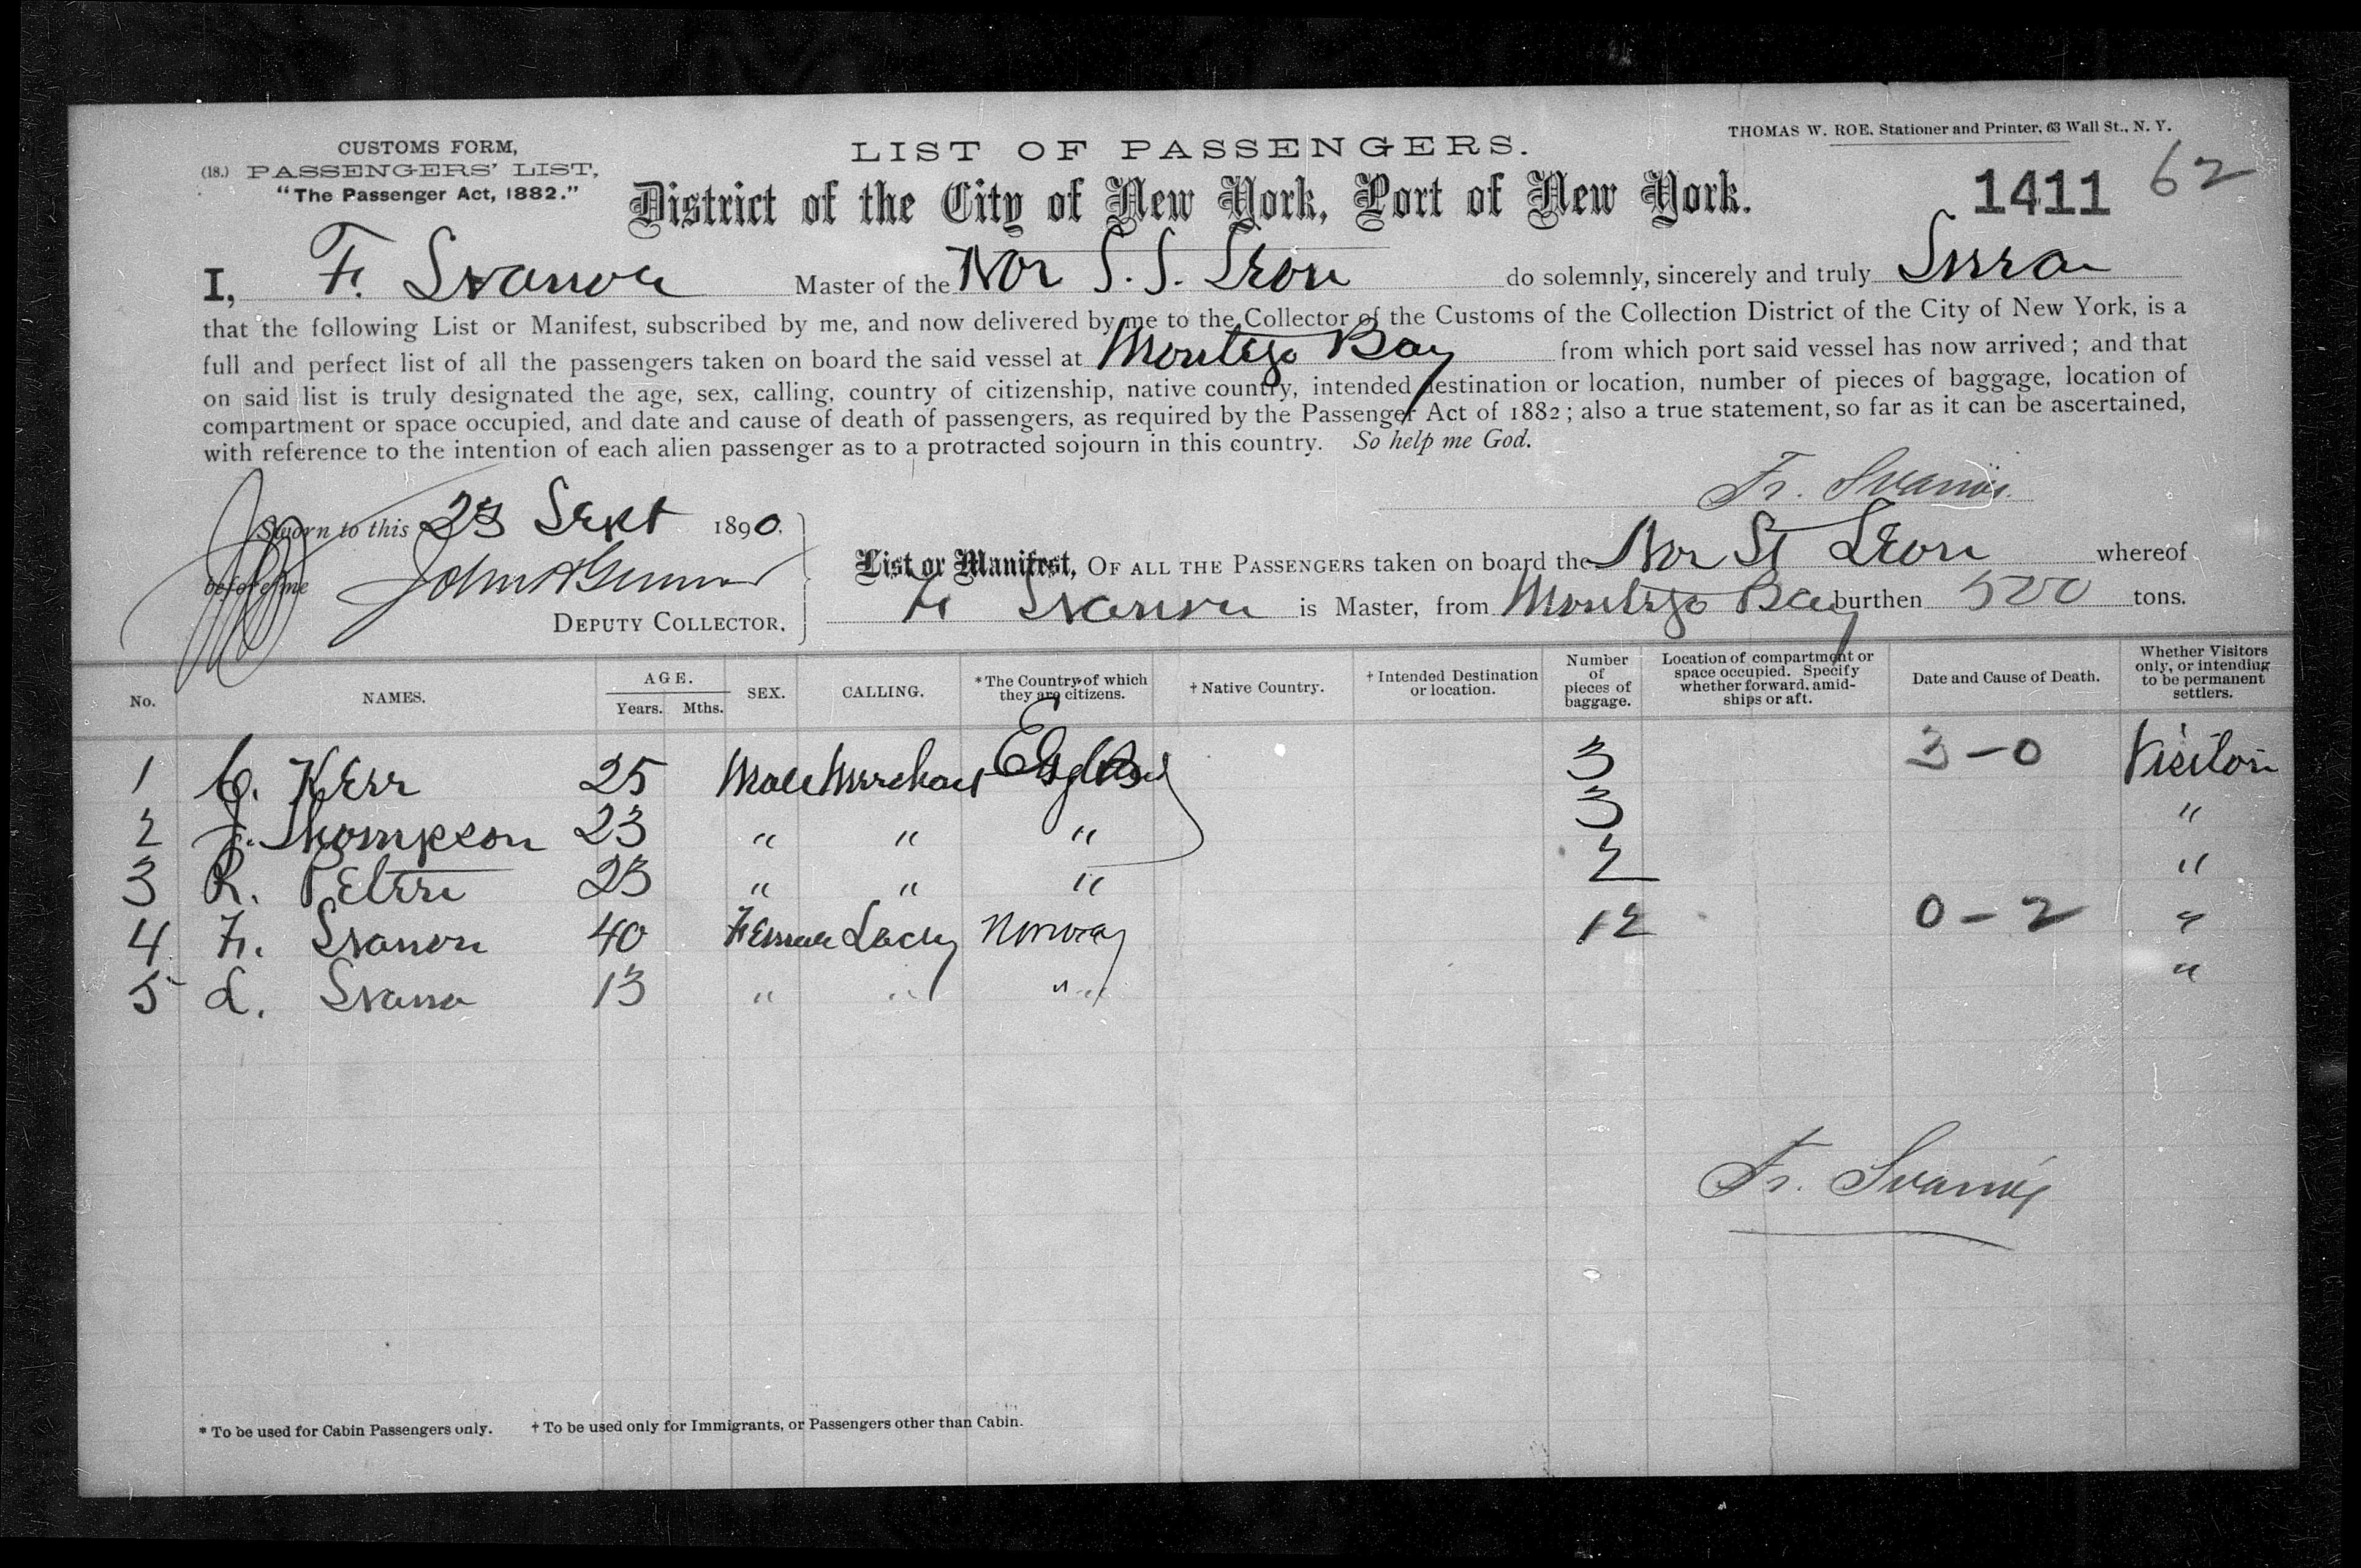 THOMAS W. ROE, Stationer and Printer, 63 Wall St., N. Y.
CUSTOMS FORM,
(18.) PASSENGERS' LIST,
"The Passenger Act, 1882."
LIST OF PASSENGERS.
District of the City of New York, Port of New York.
1411 62
I, F. Svanoe Master of the Nor S. S. Leon do solemnly, sincerely and truly Swear
that the following List or Manifest, subscribed by me, and now delivered by me to the Collector of the Customs of the Collection District of the City of New York, is a
full and perfect list of all the passengers taken on board the said vessel at Montego Bay from which port said vessel has now arrived; and that
on said list is truly designated the age, sex, calling, country of citizenship, native country, intended destination or location, number of pieces of baggage, location of
compartment or space occupied, and date and cause of death of passengers, as required by the Passenger Act of 1882; also a true statement, so far as it can be ascertained,
with reference to the intention of each alien passenger as to a protracted sojourn in this country. So help me God.
Fr. Svanöe
Sworn to this 23 Sept 1890.
before me
DEPUTY COLLECTOR.
List or Manifest, OF ALL THE PASSENGERS taken on board the Nor St Leon whereof
F. Svanoe is Master, from Montego Bay burthen 500 tons.
No. NAMES. AGE. Years. Mths. SEX. CALLING. *The Country of which they are citizens. † Native Country. † Intended Destination or location. Number of pieces of baggage. Location of compartment or space occupied. Specify whether forward, amidships or aft. Date and Cause of Death. Whether Visitors only, or intending to be permanent settlers.
1 C. Kerr 25 Male Merchant England 3 3-0 Visitors
2 J. Thompson 23 " " " 3 "
3 R. Petrie 23 " " " 2 "
4 F. Svanoe 40 Female Lady Norway 12 0-2 "
5 L. Svanoe 13 " " " "
Fr. Svanöe
* To be used for Cabin Passengers only. † To be used only for Immigrants, or Passengers other than Cabin.